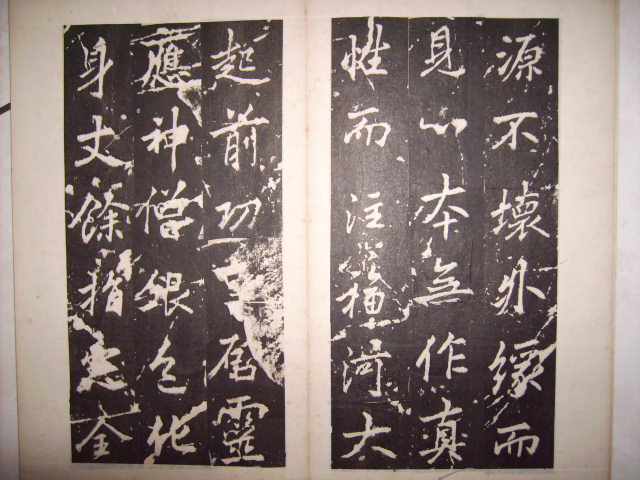 源不壞外緣而
見心本無作真
性而注種河大
起前功居靈
應神僧銀色化
身丈餘指定全